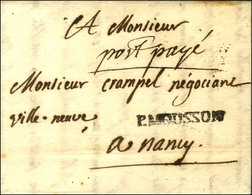 A Monsieur
port payé
Monsieur crampel négociant
ville-neuve
P.MOUSSON
a nancy.